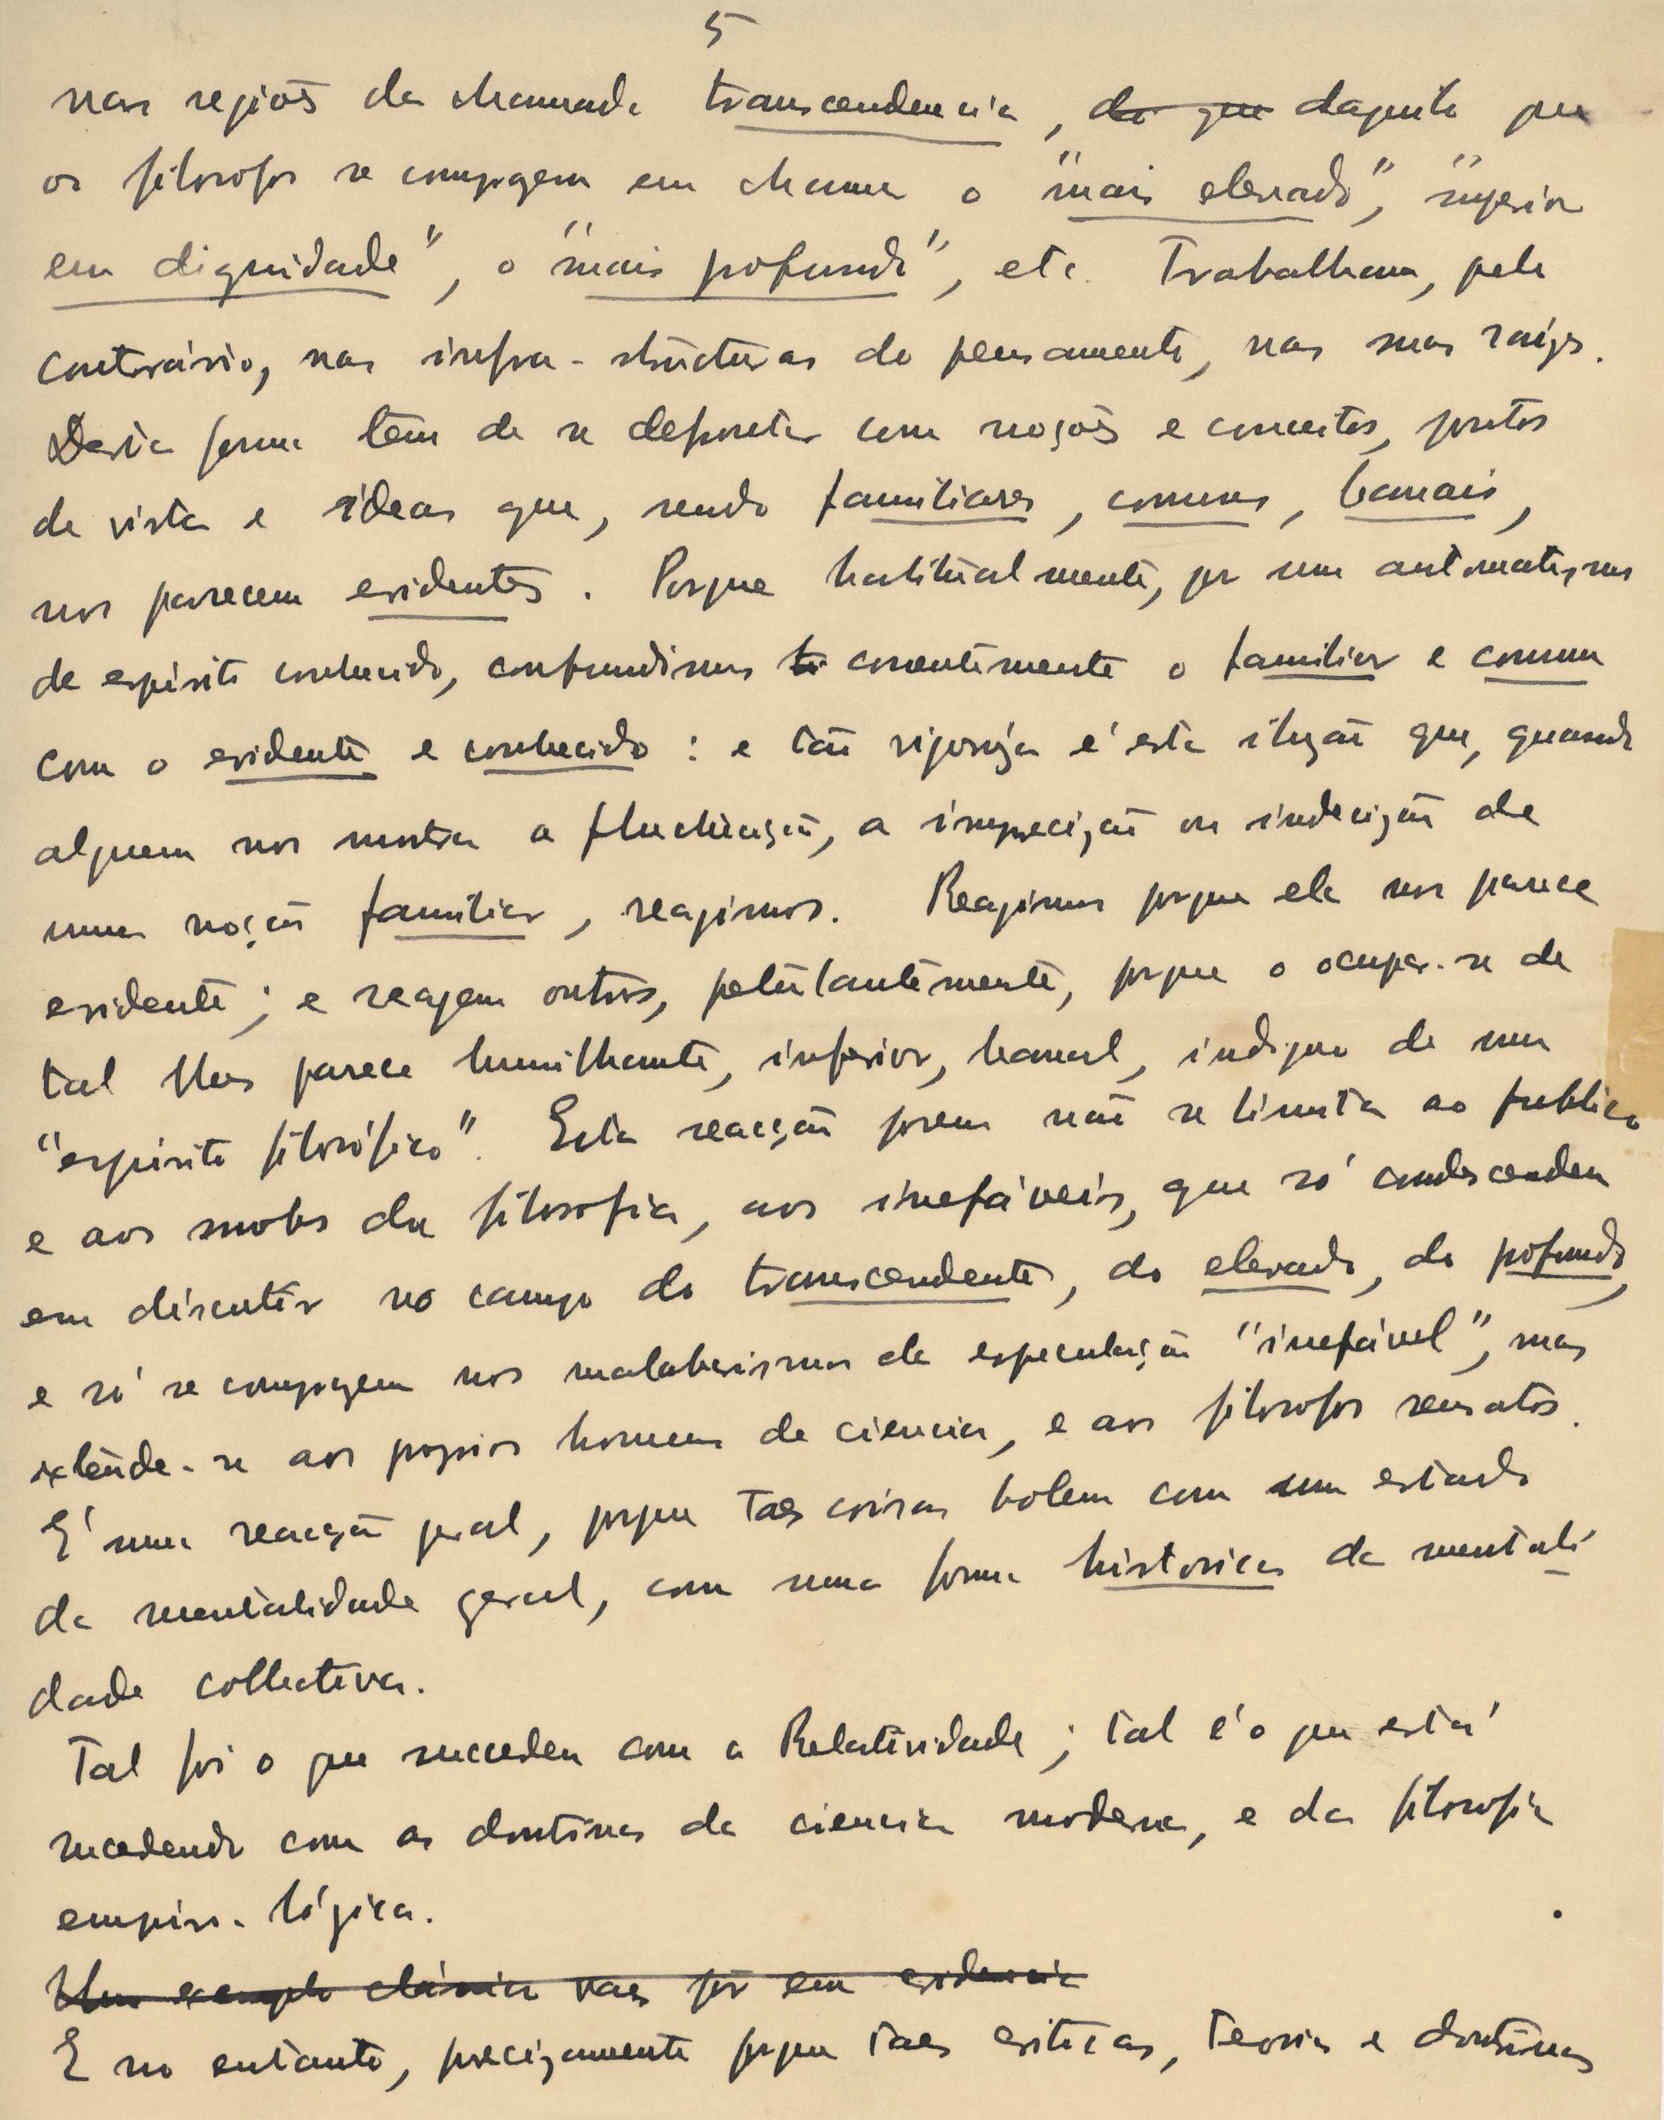 5
nas regiões da chamada transcendencia, do que daquilo que
os filosofos se comprazem em chamar o "mais elevado", "superior
em dignidade", o "mais profundo", etc. Trabalham, pelo
contrário, nas infra-structuras do pensamento, nas suas raízes.
Desta forma têm de se defrontar com noções e conceitos, pontos
de vista e ideas que, sendo familiares, comuns, banais,
nos parecem evidentes. Porque habitualmente, por um automatismo
de espirito conhecido, confundimos correntemente o familiar e comum
com o evidente e conhecido: e tão rigoroza é esta ilusão que, quando
alguem nos mostra a fluctuação, a impecizão ou indecizão de
uma noção familiar, reagimos. Reagimos porque ela nos parece
evidente; e reagem outros, petulantemente, porque o ocupar-se de
tal lhes parece humilhante, inferior, banal, indigno de um
"espirito filosófico". Esta reacção porem não se limita ao publico
e aos snobs da filosofia, aos inefáveis, que só condescendem
em discutir no campo do transcendente, do elevado, do profundo,
e só se comprazem nos malabarismos da especulação "inefável", mas
extende-se aos proprios homens de ciencia, e aos filosofos sensatos.
É uma reacção geral, porque taes coisas bolem com um estado
da mentalidade geral, com uma forma historica da mentali-
dade collectiva.
Tal foi o que succedeu com a Relatividade; tal é o que está
sucedendo com as doutrinas da ciencia moderna, e da filosofia
empiro-lógica.
Um exemplo classico vaes pôr em evidencia
E no entanto, precizamente porque taes criticas, teorias e doutrinas